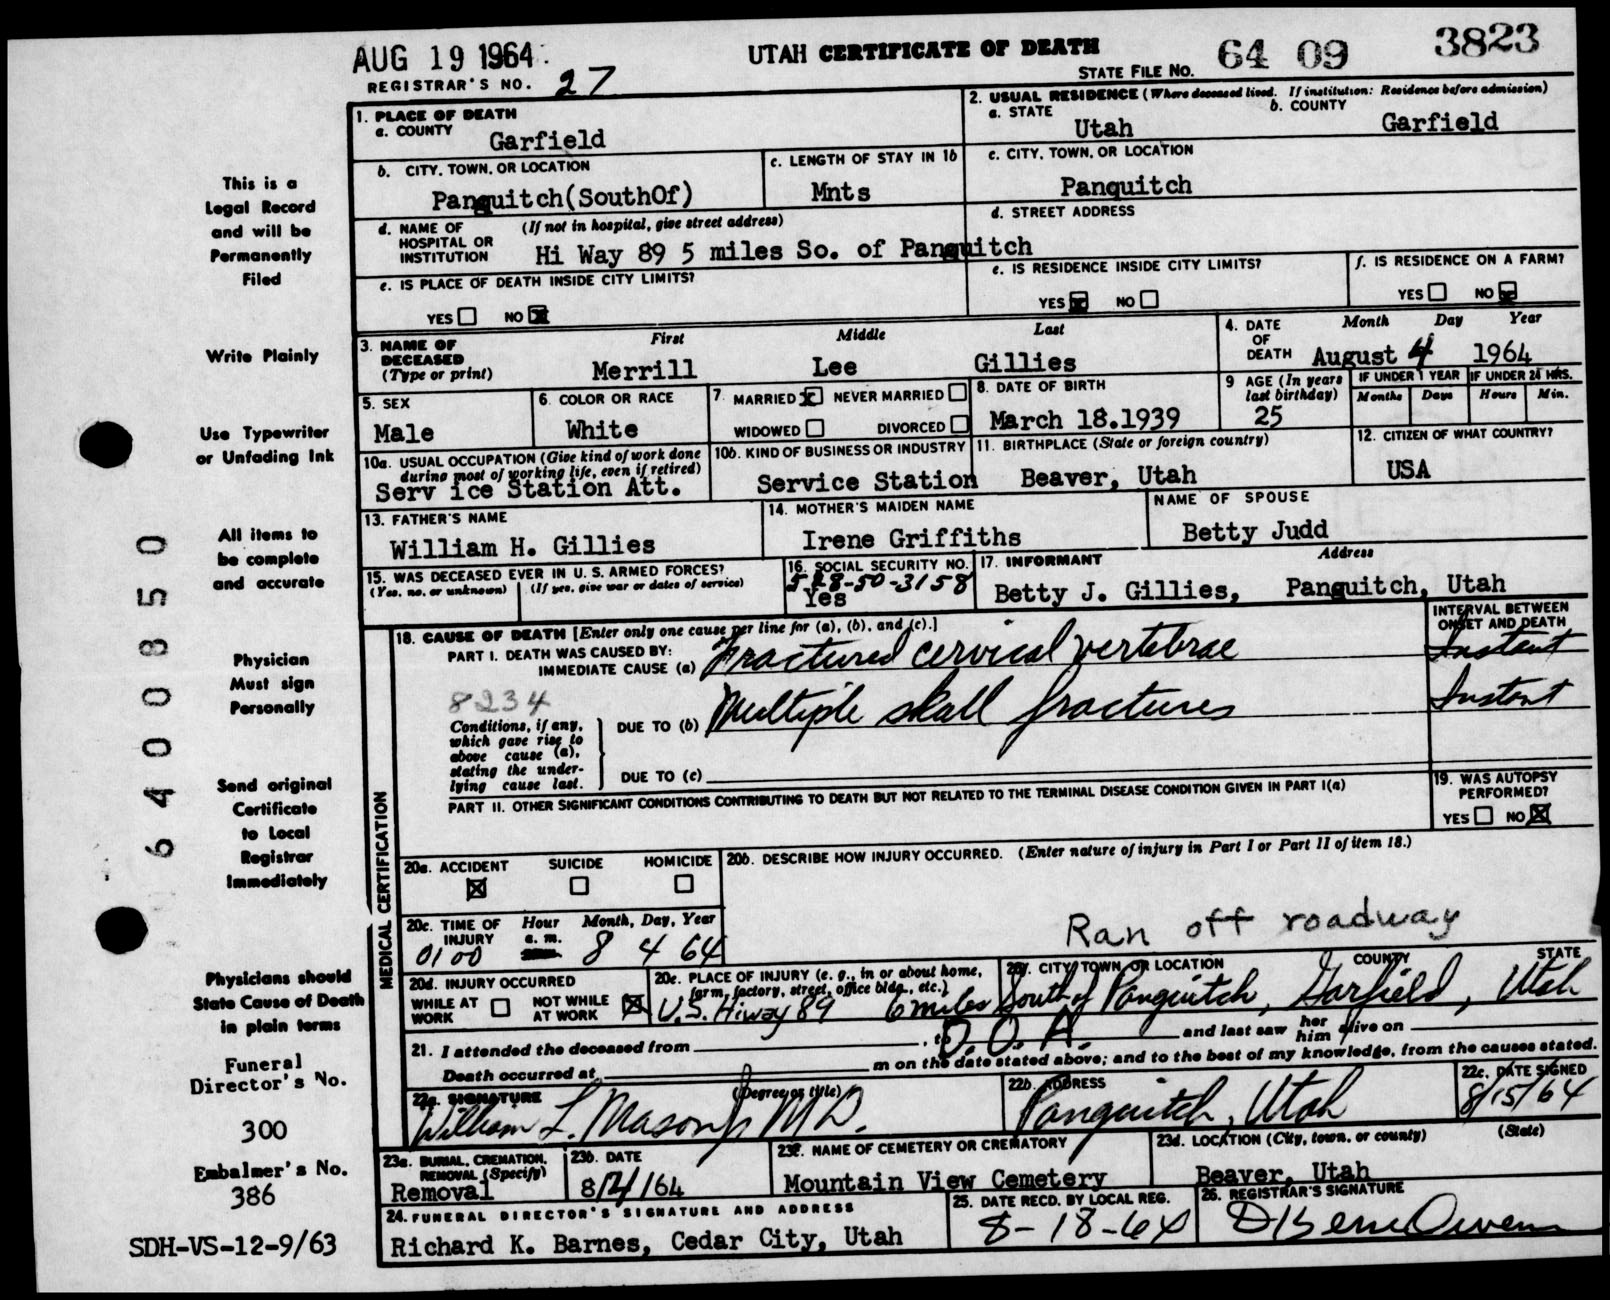 AUG 19 1964
UTAH CERTIFICATE OF DEATH
64 09 3823
REGISTRAR'S NO. 27
STATE FILE NO.
This is a
Legal Record
and will be
Permanently
Filed
Write Plainly
Use Typewriter
or Unfading Ink
All items to
be complete
and accurate
Physician
Must sign
Personally
Send original
Certificate
to Local
Registrar
Immediately
Physicians should
State Cause of Death
in plain terms
Funeral
Director's No.
300
Embalmer's No.
386
SDH-VS-12-9/63
6400850
1. PLACE OF DEATH
a. COUNTY
Garfield
2. USUAL RESIDENCE (Where deceased lived. If institution: Residence before admission)
a. STATE
Utah
b. COUNTY
Garfield
b. CITY, TOWN, OR LOCATION
Panguitch(SouthOf)
c. LENGTH OF STAY IN 1b
Mnts
c. CITY, TOWN, OR LOCATION
Panquitch
d. NAME OF HOSPITAL OR INSTITUTION
(If not in hospital, give street address)
Hi Way 89 5 miles So. of Panguitch
d. STREET ADDRESS
e. IS PLACE OF DEATH INSIDE CITY LIMITS?
YES NO
e. IS RESIDENCE INSIDE CITY LIMITS?
YES NO
f. IS RESIDENCE ON A FARM?
YES NO
3. NAME OF DECEASED
(Type or print)
First Middle Last
Merrill Lee Gillies
4. DATE OF DEATH
Month Day Year
August 4 1964
5. SEX
Male
6. COLOR OR RACE
White
7. MARRIED NEVER MARRIED
WIDOWED DIVORCED
8. DATE OF BIRTH
March 18.1939
9 AGE (In years last birthday)
25
IF UNDER 1 YEAR
Months Days
IF UNDER 24 HRS.
Hours Min.
10a. USUAL OCCUPATION (Give kind of work done
during most of working life, even if retired)
Serv ice Station Att.
10b. KIND OF BUSINESS OR INDUSTRY
Service Station
11. BIRTHPLACE (State or foreign country)
Beaver, Utah
12. CITIZEN OF WHAT COUNTRY?
USA
13. FATHER'S NAME
William H. Gillies
14. MOTHER'S MAIDEN NAME
Irene Griffiths
NAME OF SPOUSE
Betty Judd
15. WAS DECEASED EVER IN U. S. ARMED FORCES?
(Yes, no, or unknown) (If yes, give war or dates of service)
16. SOCIAL SECURITY NO.
528-50-3158
Yes
17. INFORMANT Address
Betty J. Gillies, Panguitch, Utah
MEDICAL CERTIFICATION
18. CAUSE OF DEATH [Enter only one cause per line for (a), (b), and (c).]
INTERVAL BETWEEN ONSET AND DEATH
PART I. DEATH WAS CAUSED BY:
IMMEDIATE CAUSE (a) Fractured cervical vertebrae Instant
8234
Conditions, if any,
which gave rise to
above cause (a),
stating the under-
lying cause last.
DUE TO (b) Multiple skull fractures Instant
DUE TO (c)
PART II. OTHER SIGNIFICANT CONDITIONS CONTRIBUTING TO DEATH BUT NOT RELATED TO THE TERMINAL DISEASE CONDITION GIVEN IN PART I(a)
19. WAS AUTOPSY PERFORMED?
YES NO
20a. ACCIDENT SUICIDE HOMICIDE
20b. DESCRIBE HOW INJURY OCCURRED. (Enter nature of injury in Part I or Part II of item 18.)
Ran off roadway
20c. TIME OF INJURY Hour Month, Day, Year
a. m.
0100 8 4 64
20d. INJURY OCCURRED
WHILE AT WORK NOT WHILE AT WORK
20e. PLACE OF INJURY (e. g., in or about home,
farm, factory, street, office bldg., etc.)
U.S. Hiway 89
20f. CITY, TOWN, OR LOCATION COUNTY STATE
6 miles South of Panguitch, Garfield, Utah
21. I attended the deceased from , to D.O.A. and last saw her him alive on
Death occurred at m on the date stated above; and to the best of my knowledge, from the causes stated.
22a. SIGNATURE (Degree or title)
William L. Mason Jr MD.
22b. ADDRESS
Panguitch, Utah
22c. DATE SIGNED
8/15/64
23a. BURIAL, CREMATION, REMOVAL (Specify)
Removal
23b. DATE
23c. NAME OF CEMETERY OR CREMATORY
Mountain View Cemetery
23d. LOCATION (City, town, or county) (State)
Beaver, Utah
24. FUNERAL DIRECTOR'S SIGNATURE AND ADDRESS
Richard K. Barnes, Cedar City, Utah
25. DATE RECD. BY LOCAL REG.
8-18-64
26. REGISTRAR'S SIGNATURE